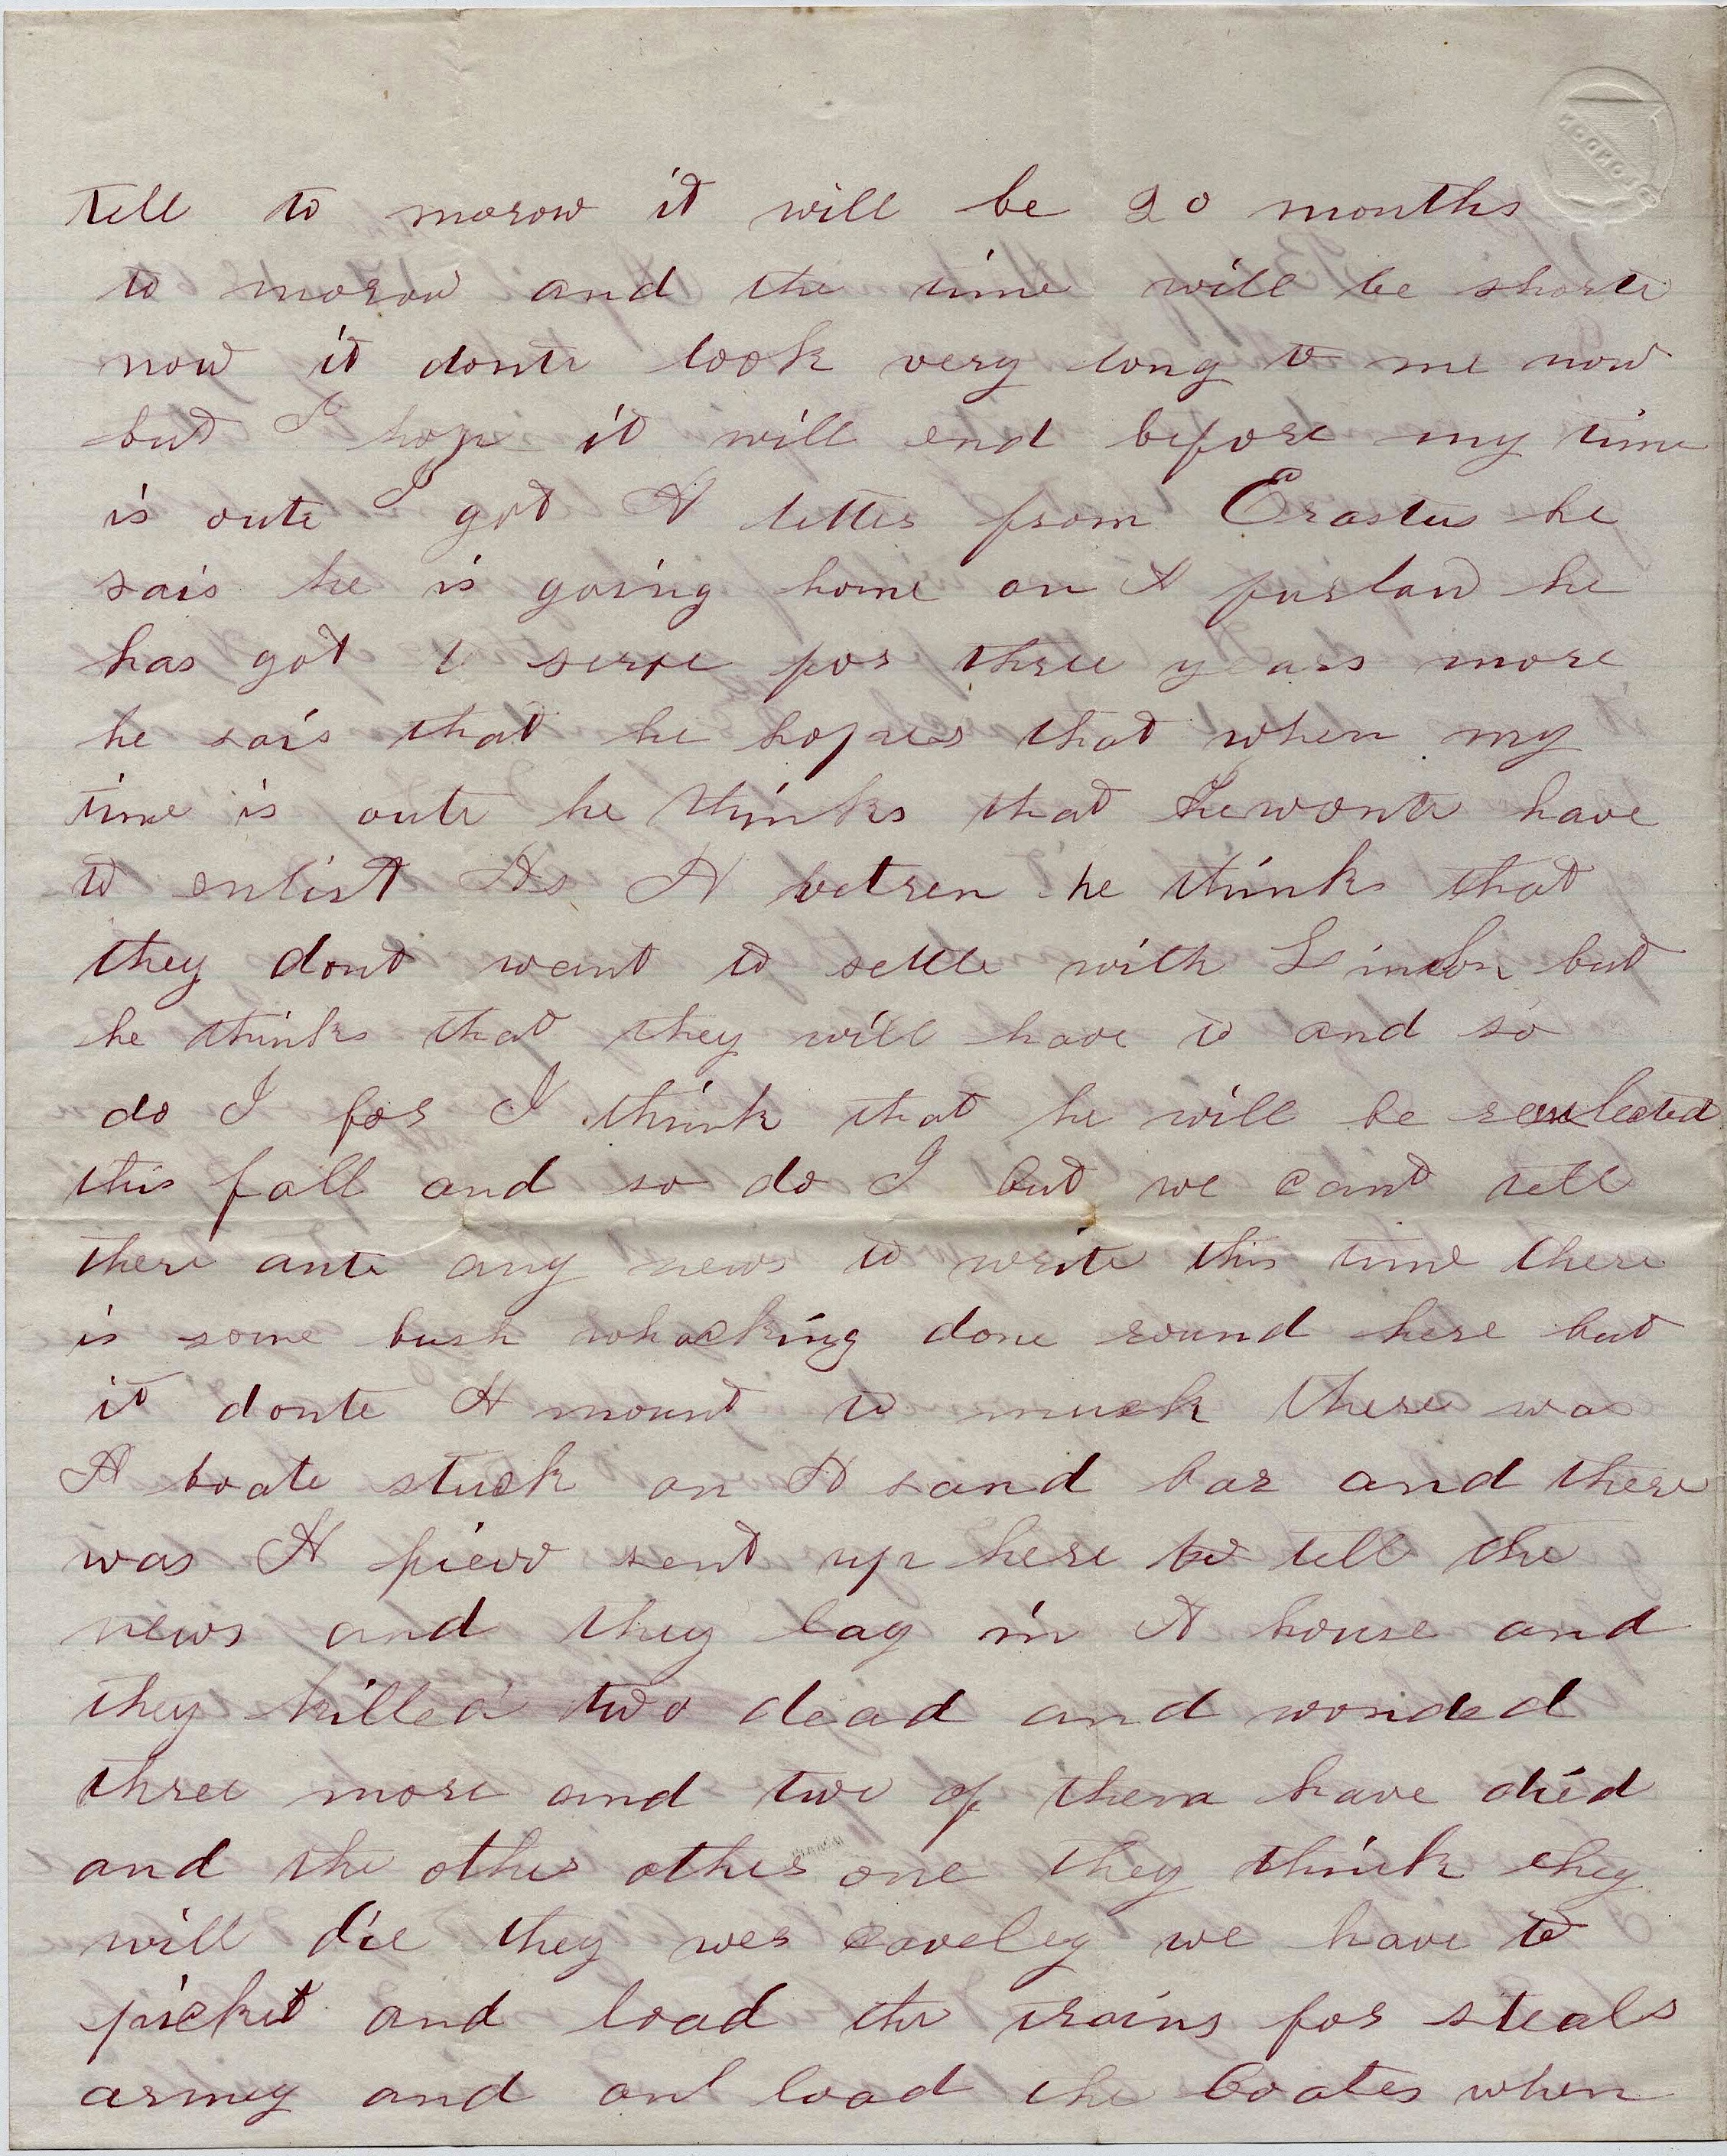 tell to morow it will be 20 months
to morow and the time will be shorte
now it donte look very long to me now
but I hope it will end before my time
is oute I got A letter from Erastus he
sais he is going home on A furlow he
has got to serve for three years more
he sais that he hopes that when my
time is oute he thinks that he wonte have
to enlist As A vetren he thinks that
they dont want to settle with Linkon but
he thinks that they will have to and so
do I for I think that he will be reelected
this fall and so do I but we cant tell
there ante any news to write this time there
is some bush whacking done round here but
it donte A mount to much there was
A boate stuck on A sand bar and there
was A sent up here to tell the
news and they lay in A house and
they killed two dead and wonded
three more and two of them have died
and the other other one they think they
will die they wer caveley we have to
picket and load the trains for steals
armey and onl load the boates when